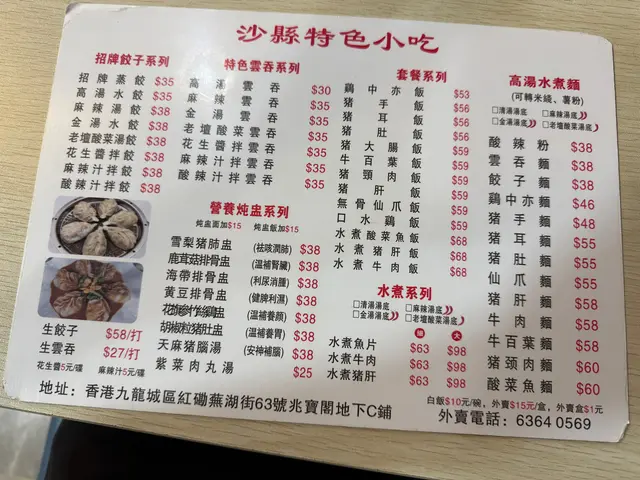 沙縣特色小吃
招牌餃子系列
招牌蒸餃 $35
高湯水餃 $35
麻辣湯餃 $38
金湯水餃 $38
老壇酸菜湯餃 $38
花生醬拌餃 $38
麻辣汁拌餃 $38
酸辣汁拌餃 $38
特色雲吞系列
高湯雲吞 $30
麻辣雲吞 $35
金湯雲吞 $35
老壇酸菜雲吞 $35
花生醬拌雲吞 $35
麻辣汁拌雲吞 $35
酸辣汁拌雲吞 $35
套餐系列
鷄中亦飯 $53
豬手飯 $56
豬耳飯 $56
豬肚飯 $56
豬大腸飯 $59
牛百葉飯 $59
豬頸肉飯 $59
豬肝飯 $59
無骨仙爪飯 $59
口水鷄飯 $59
水煮酸菜魚飯 $68
水煮豬肝飯 $68
水煮牛肉飯 $68
高湯水煮麵
(可轉米綫、薯粉)
□清湯湯底 □麻辣湯底
□金湯湯底 □老壇酸菜湯底
酸辣粉 $38
雲吞麵 $38
餃子麵 $38
鷄中亦麵 $46
豬手麵 $48
豬耳麵 $55
豬肚麵 $55
仙爪麵 $55
豬肝麵 $58
牛肉麵 $58
牛百葉麵 $58
豬頸肉麵 $60
酸菜魚麵 $60
營養炖盅系列
炖盅面加$15 炖盅飯加$15
雪梨豬肺盅 (祛咳潤肺) $38
鹿茸菇排骨盅 (溫補腎臟) $38
海帶排骨盅 (利尿消腫) $38
黄豆排骨盅 (健脾利濕) $38
(溫補養顏) $38
胡椒粒豬肚盅 (溫補養胃) $38
天麻豬腦湯 (安神補腦) $38
紫菜肉丸湯 $25
水煮系列
□清湯湯底 □麻辣湯底
□金湯湯底 □老壇酸菜湯底
水煮魚片 $63 $98
水煮牛肉 $63 $98
水煮豬肝 $63 $98
生餃子 $58/打
生雲吞 $27/打
花生醬5元/碟 麻辣汁5元/碟
白飯$10元/碗，外賣$15元/盒，外賣盒$1元
地址：香港九龍城區紅磡蕪湖街63號兆寶閣地下C鋪
外賣電話：6364 0569